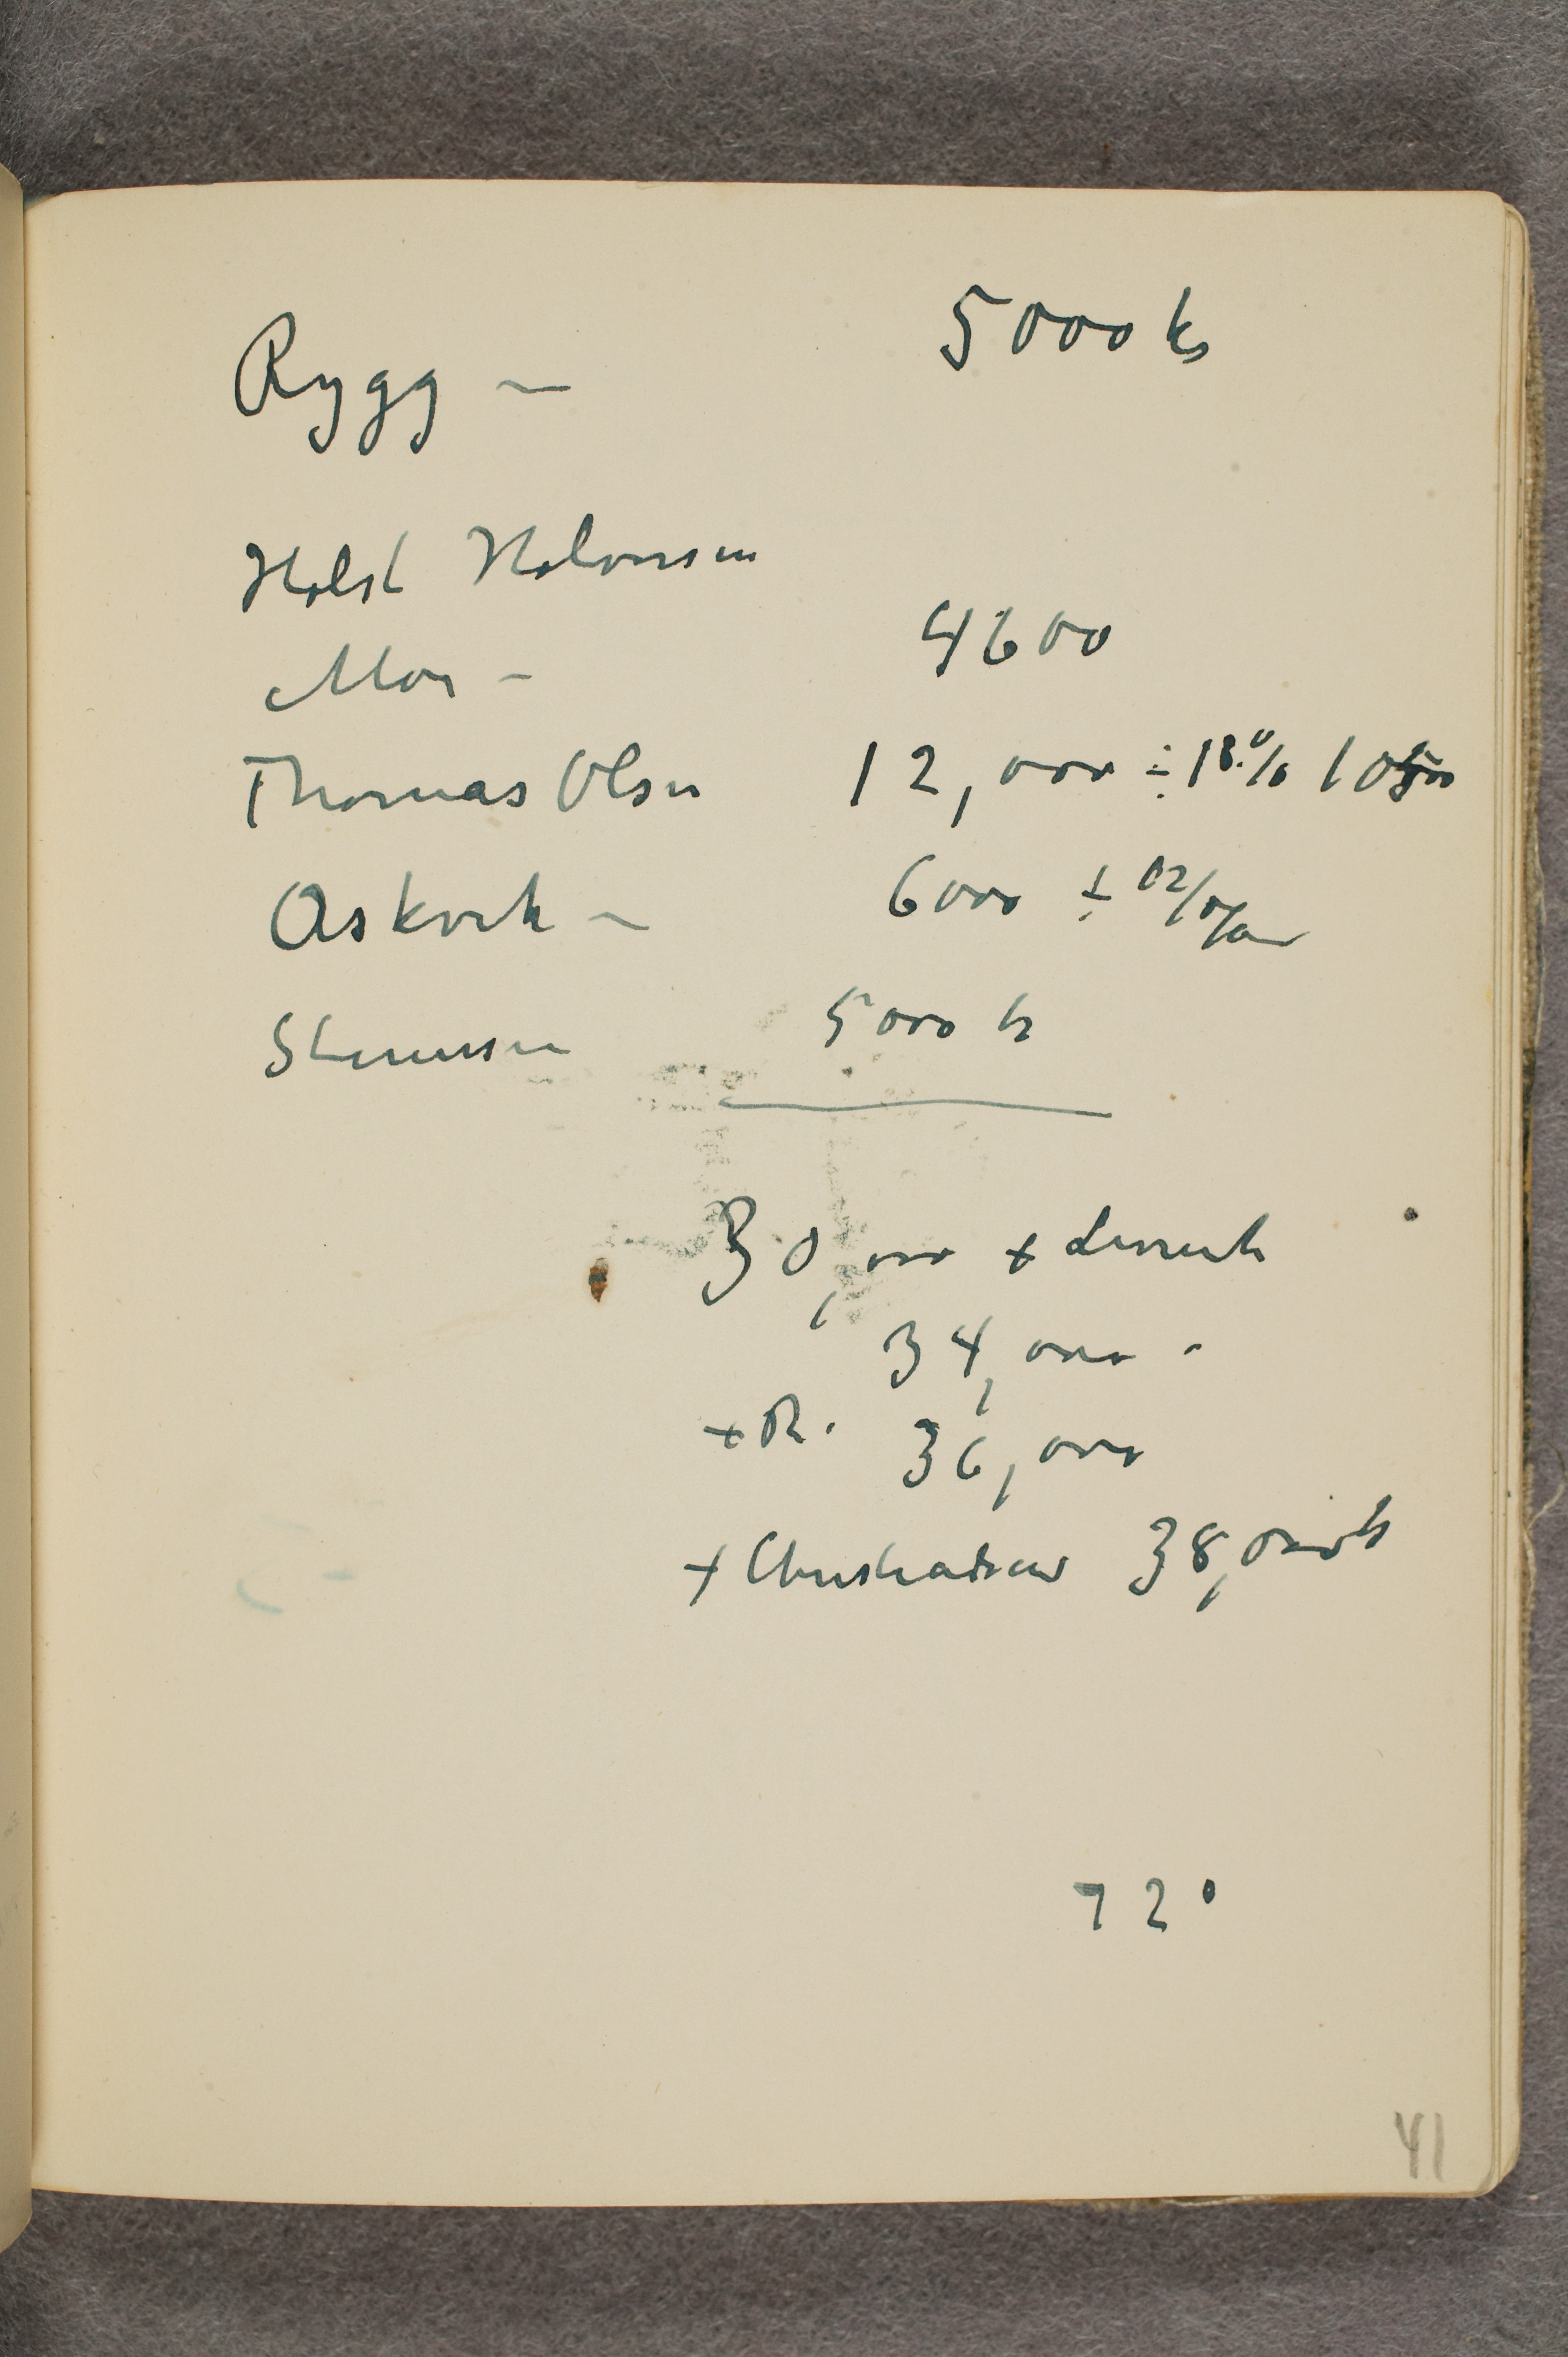 Rygg – 5000 kr
Holst Halvorsen
Mor – 4600
Thomas Olsen 12,000 ÷ 18% 10500
Askvik – 6000 ÷
Stenersen 5000 kr
30,000 +
34,000 –
+ R. 36,000
+ 38,000 kr
72°
41